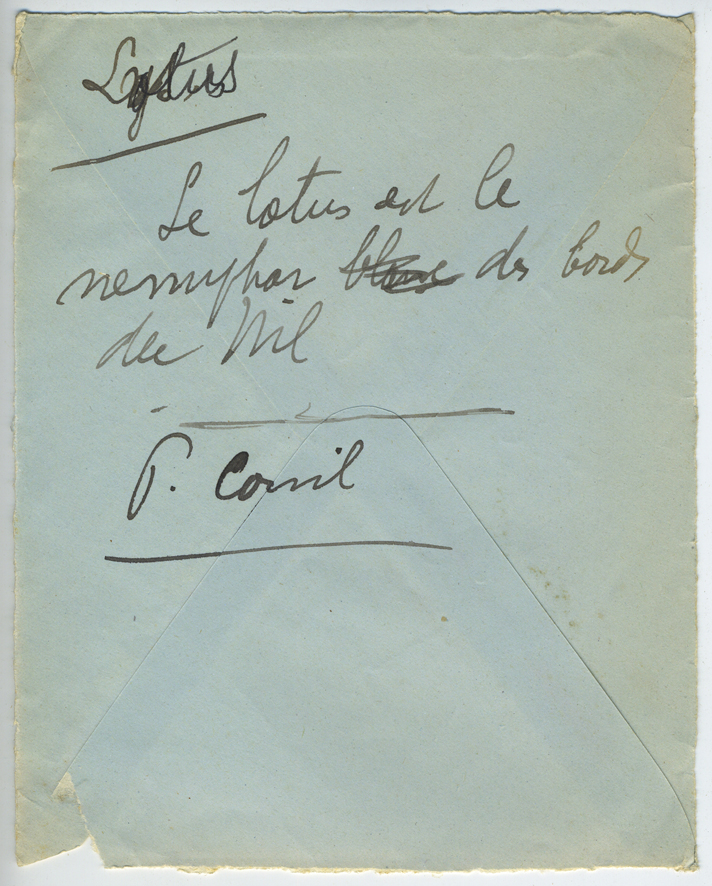 Lotus
Le lotus est le
nenuphar des bords
du Nil
P. Cornil